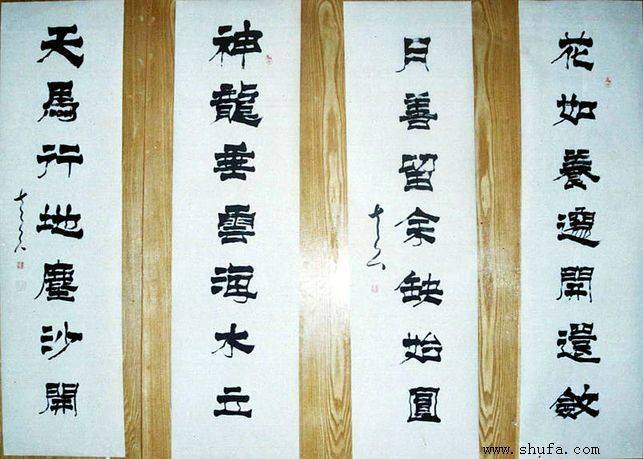 花如養開還斂
月善留余缺始圓
神龍垂雲海水立
天馬行地塵沙開
www.shufa.com